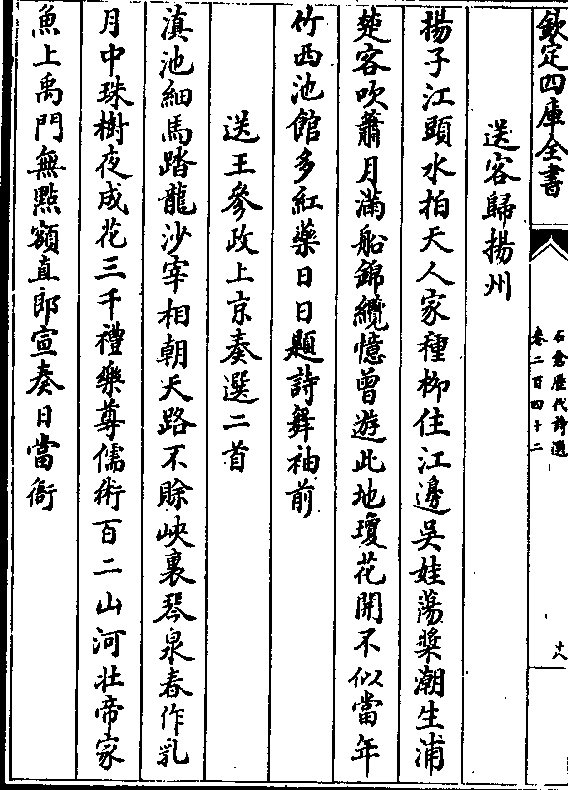 欽定四庫全書
石倉歷代詩選
卷二百四十二
送客歸揚州
揚子江頭水拍天人家種栁住江邊吳娃蕩槳潮生浦
楚客吹簫月滿船錦纜憶曾遊此地瓊花開不似當年
竹西池館多紅藥日日題詩舞袖前
送王參政上京奏選二首
滇池細馬踏龍沙宰相朝天路不賒峽裏琴泉春作乳
月中珠樹夜成花三千禮樂尊儒術百二山河壯帝家
魚上禹門無點額直郎宣奏日當衙